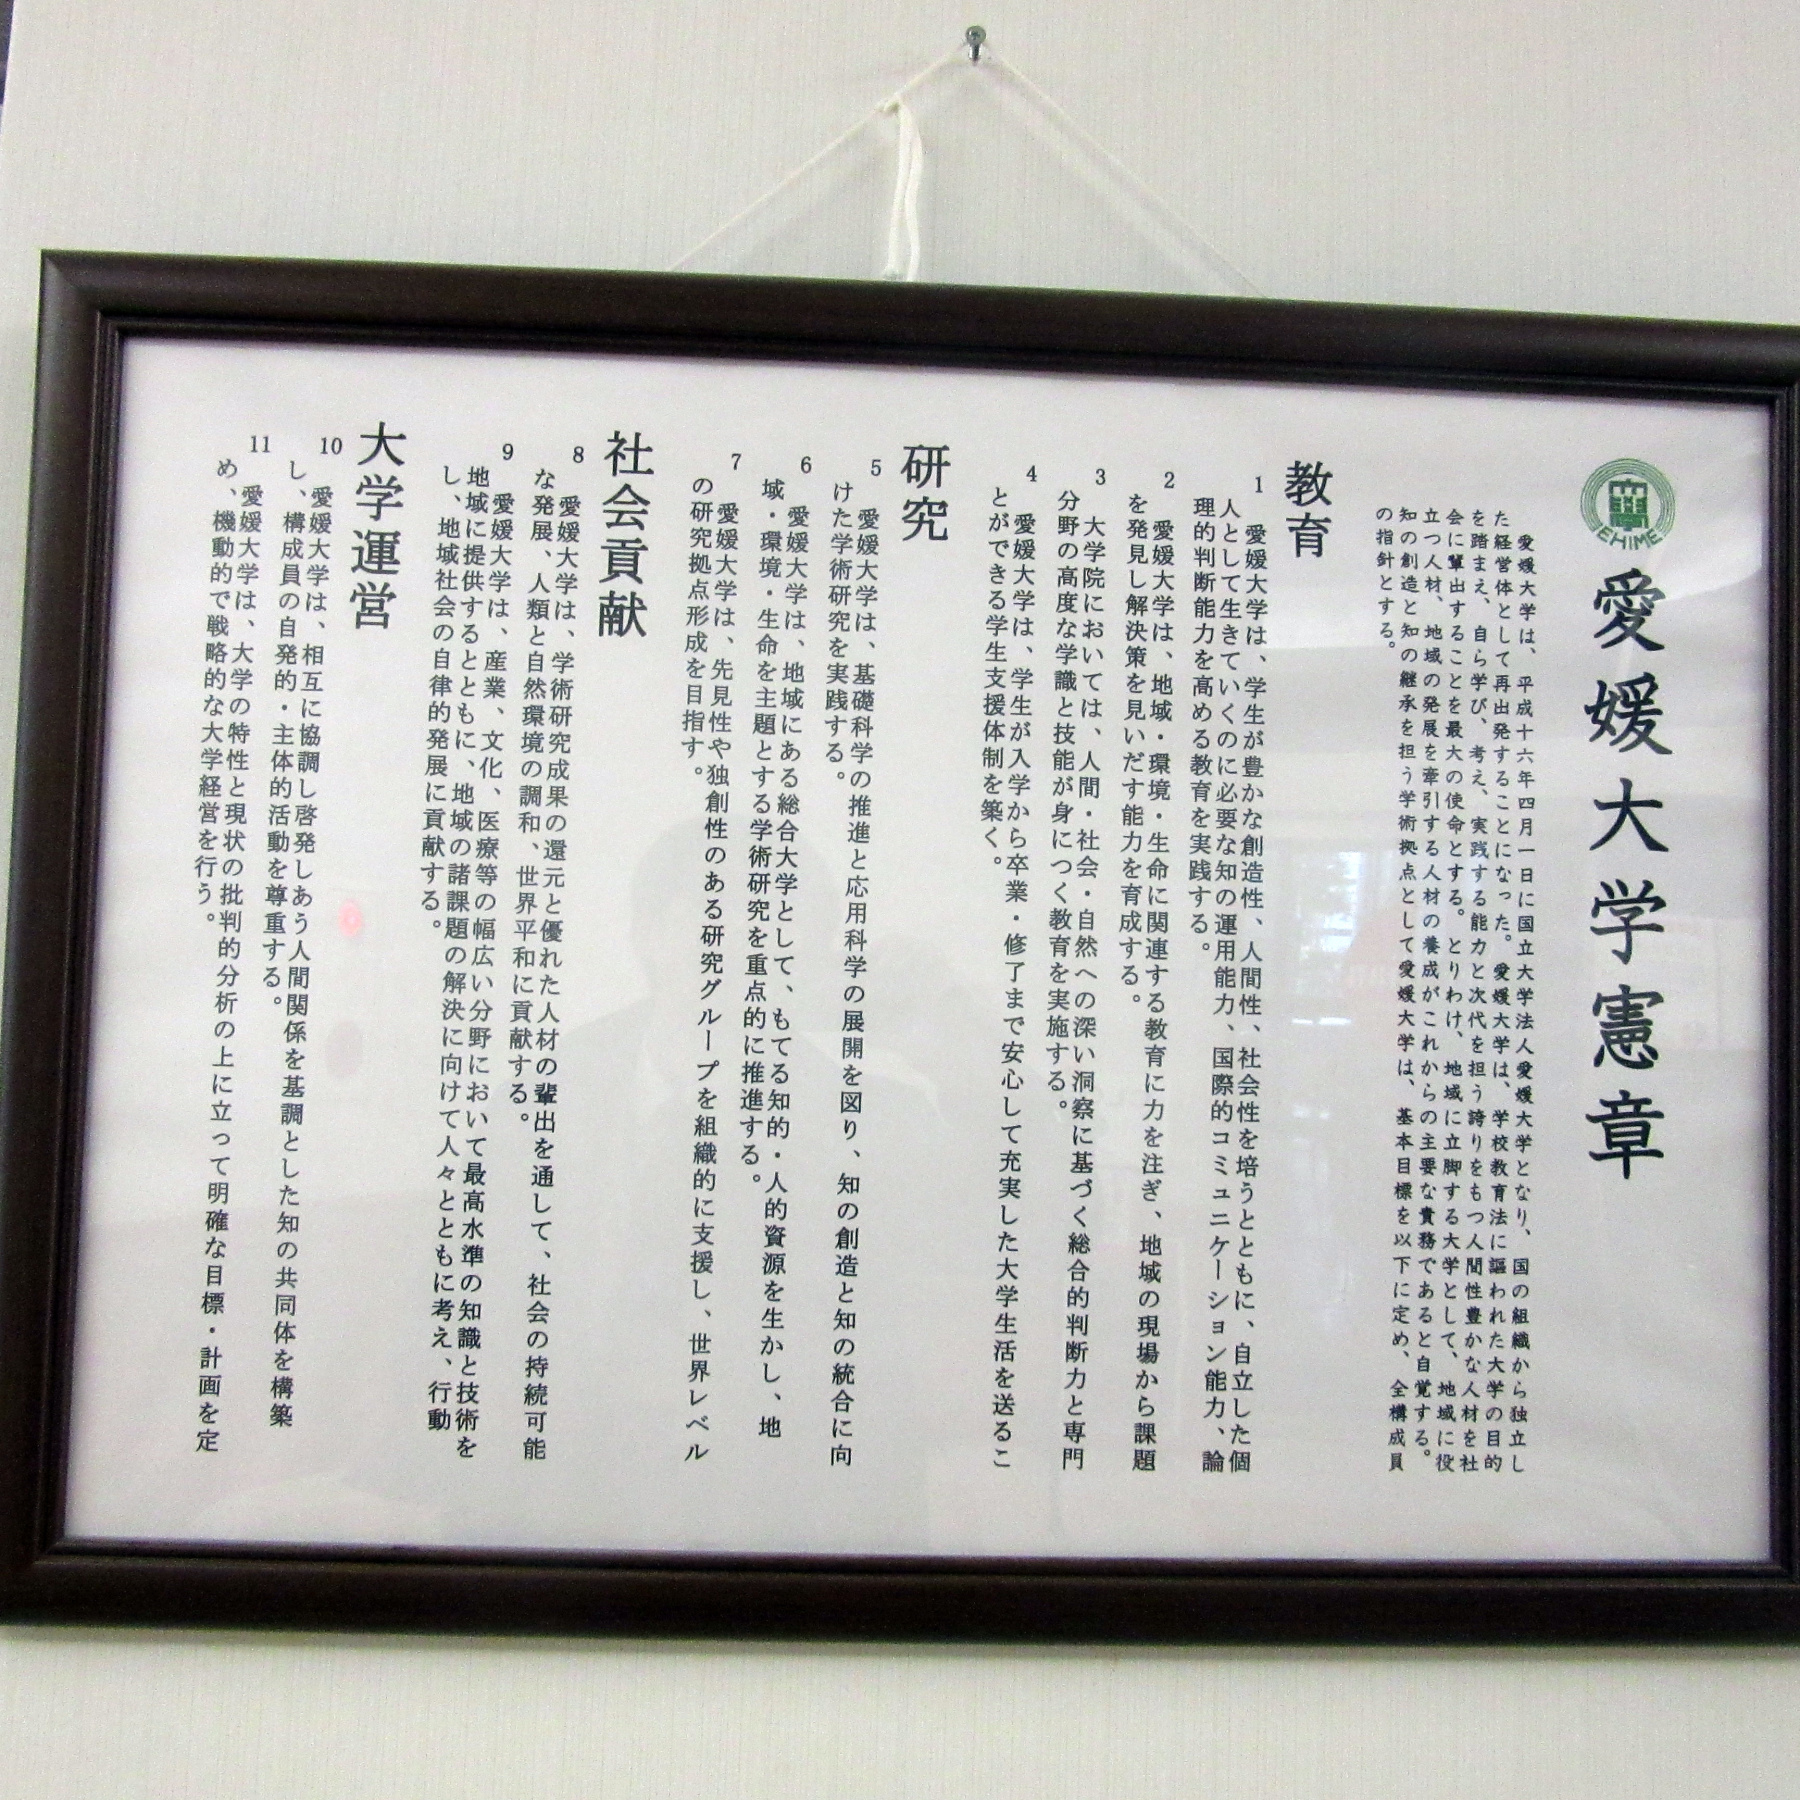 EHIME
愛媛大学憲章
愛媛大学は、平成十六年四月一日に国立大学法人愛媛大学となり、国の組織から独立し
た経営体として再出発することになった。愛媛大学は、学校教育法に謳われた大学の目的
を踏まえ、自ら学び、考え、実践する能力と次代を担う誇りをもつ人間性豊かな人材を社
会に輩出することを最大の使命とする。とりわけ、地域に立脚する大学として、地域に役
立つ人材、地域の発展を牽引する人材の養成がこれからの主要な責務であると自覚する。
知の創造と知の継承を担う学術拠点として愛媛大学は、基本目標を以下に定め、全構成員
の指針とする。
教育
1 愛媛大学は、学生が豊かな創造性、人間性、社会性を培うとともに、自立した個
人として生きていくのに必要な知の運用能力、国際的コミュニケーション能力、論
理的判断能力を高める教育を実践する。
2 愛媛大学は、地域・環境・生命に関連する教育に力を注ぎ、地域の現場から課題
を発見し解決策を見いだす能力を育成する。
3 大学院においては、人間・社会・自然への深い洞察に基づく総合的判断力と専門
分野の高度な学識と技能が身につく教育を実施する。
4 愛媛大学は、学生が入学から卒業・修了まで安心して充実した大学生活を送るこ
とができる学生支援体制を築く。
研究
5 愛媛大学は、基礎科学の推進と応用科学の展開を図り、知の創造と知の統合に向
けた学術研究を実践する。
6 愛媛大学は、地域にある総合大学として、もてる知的・人的資源を生かし、地
域・環境・生命を主題とする学術研究を重点的に推進する。
7 愛媛大学は、先見性や独創性のある研究グループを組織的に支援し、世界レベル
の研究拠点形成を目指す。
社会貢献
8 愛媛大学は、学術研究成果の還元と優れた人材の輩出を通して、社会の持続可能
な発展、人類と自然環境の調和、世界平和に貢献する。
9 愛媛大学は、産業、文化、医療等の幅広い分野において最高水準の知識と技術を
地域に提供するとともに、地域の諸課題の解決に向けて人々とともに考え、行動
し、地域社会の自律的発展に貢献する。
大学運営
10 愛媛大学は、相互に協調し啓発しあう人間関係を基調とした知の共同体を構築
し、構成員の自発的・主体的活動を尊重する。
11 愛媛大学は、大学の特性と現状の批判的分析の上に立って明確な目標・計画を定
め、機動的で戦略的な大学経営を行う。